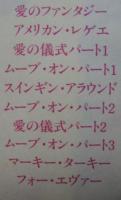 愛のファンタジー
アメリカン・レゲエ
愛の儀式パート1
ムーブ・オン・パート1
スインギン・アラウンド
ムーブ・オン・パート2
愛の儀式パート2
ムーブ・オン・パート3
マーキー・ターキー
フォー・エヴァー